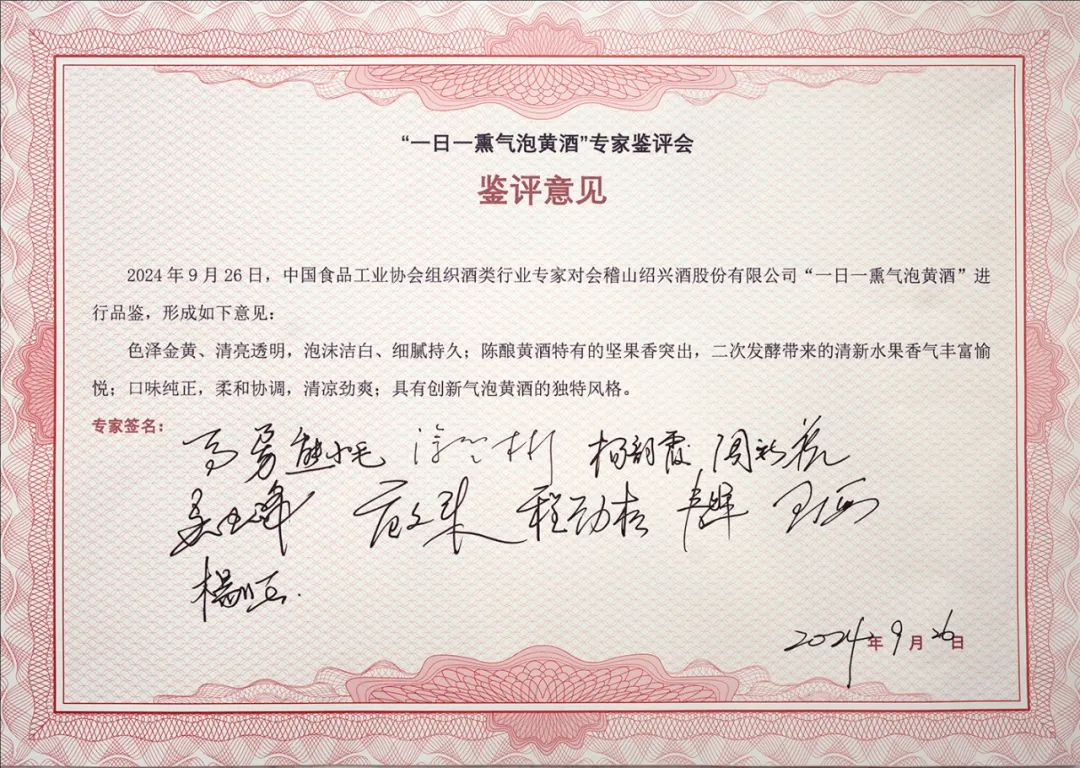 “一日一熏气泡黄酒”专家鉴评会
鉴评意见
2024 年 9 月 26 日，中国食品工业协会组织酒类行业专家对会稽山绍兴酒股份有限公司“一日一熏气泡黄酒”进
行品鉴，形成如下意见：
色泽金黄、清亮透明，泡沫洁白、细腻持久；陈酿黄酒特有的坚果香突出，二次发酵带来的清新水果香气丰富愉
悦；口味纯正，柔和协调，清凉劲爽；具有创新气泡黄酒的独特风格。
专家签名：
高勇 熊小毛
程劲松
2024年9月26日